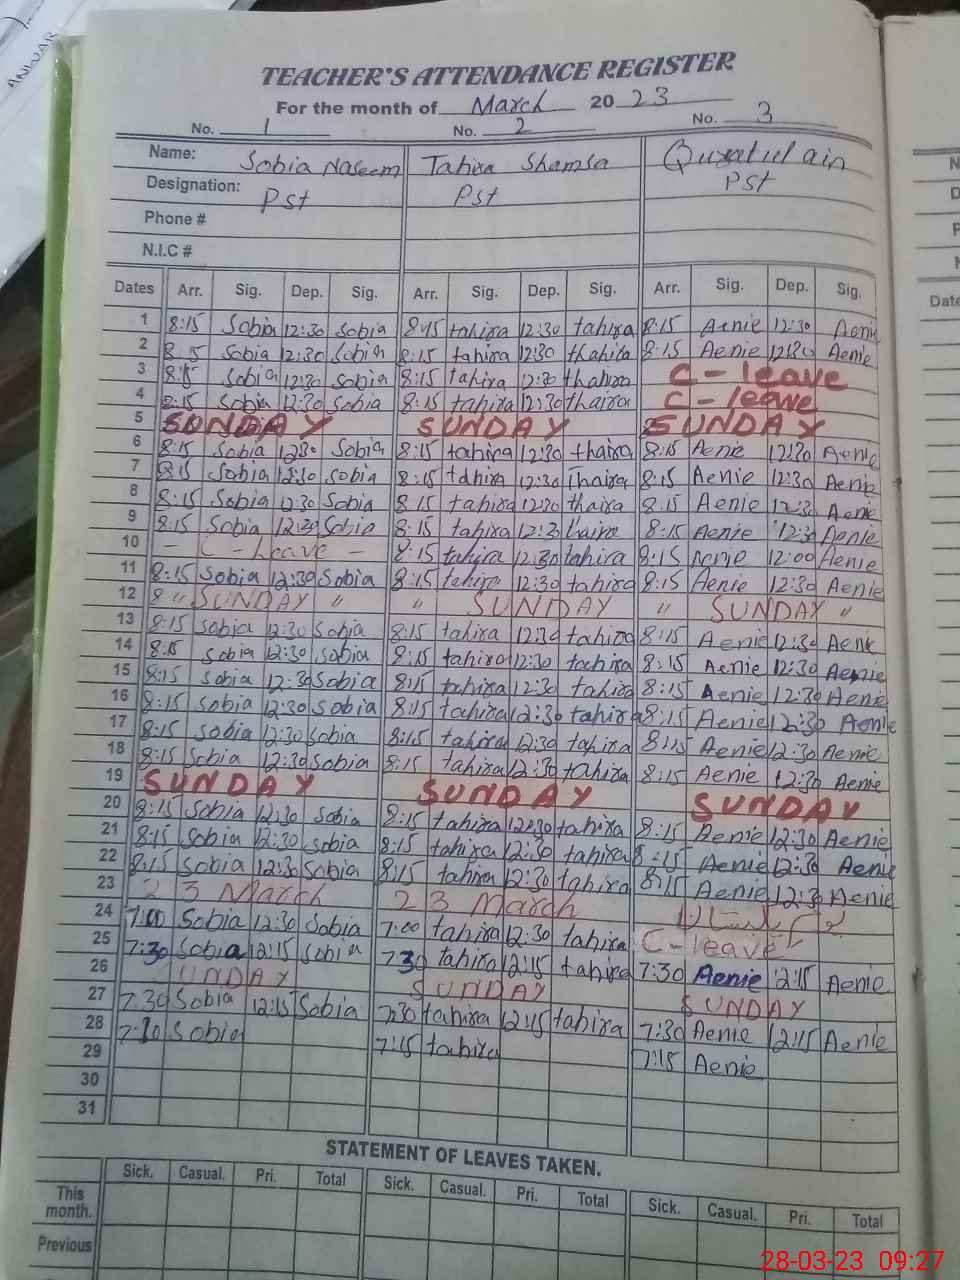 ANWAR
TEACHER'S ATTENDANCE REGISTER
For the month of March 20 23
No. 1 No. 2 No. 3
Name: Sobia Naseem Tahira Shamsa Quratul ain
Designation: Pst Pst Pst
Phone #
N.I.C #
Dates Arr. Sig. Dep. Sig. Arr. Sig. Dep. Sig. Arr. Sig. Dep. Sig.
1 8:15 Sobia 12:30 Sobia 8:15 tahira 12:30 tahira 8:15 Aenie 12:30 Aenie
2 8:15 Sobia 12:30 Sobia 8:15 tahira 12:30 thahira 8:15 Aenie 12:30 Aenie
3 8:15 Sobia 12:30 Sobia 8:15 tahira 12:30 thahira C - leave
4 8:15 Sobia 12:30 Sobia 8:15 tahira 12:30 thaira C - leave
5 SUNDAY SUNDAY SUNDAY
6 8:15 Sobia 12:30 Sobia 8:15 tahira 12:30 thaira 8:15 Aenie 12:30 Aenie
7 8:15 Sobia 12:30 Sobia 8:15 tahira 12:30 Thaira 8:15 Aenie 12:30 Aenie
8 8:15 Sobia 12:30 Sobia 8:15 tahira 12:30 thaira 8:15 Aenie 12:30 Aenie
9 8:15 Sobia 12:30 Sobia 8:15 tahira 12:30 8:15 Aenie 12:30 Aenie
10 - C - Leave - 8:15 tahira 12:30 tahira 8:15 Aenie 12:00 Aenie
11 8:15 Sobia 12:30 Sobia 8:15 tahira 12:30 tahira 8:15 Aenie 12:30 Aenie
12 " SUNDAY " " SUNDAY " SUNDAY "
13 8:15 Sobia 12:30 Sobia 8:15 tahira 12:30 tahira 8:15 Aenie 12:30 Aenie
14 8:15 Sobia 12:30 Sobia 8:15 tahira 12:30 tahira 8:15 Aenie 12:30 Aenie
15 8:15 Sobia 12:30 Sobia 8:15 tahira 12:30 tahira 8:15 Aenie 12:30 Aenie
16 8:15 Sobia 12:30 Sobia 8:15 tahira 12:30 tahira 8:15 Aenie 12:30 Aenie
17 8:15 Sobia 12:30 Sobia 8:15 tahira 12:30 tahira 8:15 Aenie 12:30 Aenie
18 8:15 Sobia 12:30 Sobia 8:15 tahira 12:30 tahira 8:15 Aenie 12:30 Aenie
19 SUNDAY SUNDAY SUNDAY
20 8:15 Sobia 12:30 Sobia 8:15 tahira 12:30 tahira 8:15 Aenie 12:30 Aenie
21 8:15 Sobia 12:30 Sobia 8:15 tahira 12:30 tahira 8:15 Aenie 12:30 Aenie
22 8:15 Sobia 12:30 Sobia 8:15 tahira 12:30 tahira 8:15 Aenie 12:30 Aenie
23 23 March 23 March
24 7:00 Sobia 12:30 Sobia 7:00 tahira 12:30 tahira C - leave
25 7:30 Sobia 12:15 Sobia 730 tahira 12:15 tahira 7:30 Aenie 12:15 Aenie
26 SUNDAY SUNDAY SUNDAY
27 7:30 Sobia 12:15 Sobia 7:30 tahira 12:15 tahira 7:30 Aenie 12:15 Aenie
28 Sobia 7:15 tahira 7:15 Aenie
29
30
31
STATEMENT OF LEAVES TAKEN.
Sick. Casual. Pri. Total Sick. Casual. Pri. Total Sick. Casual. Pri. Total
This month.
Previous
Date
28-03-23 09:27